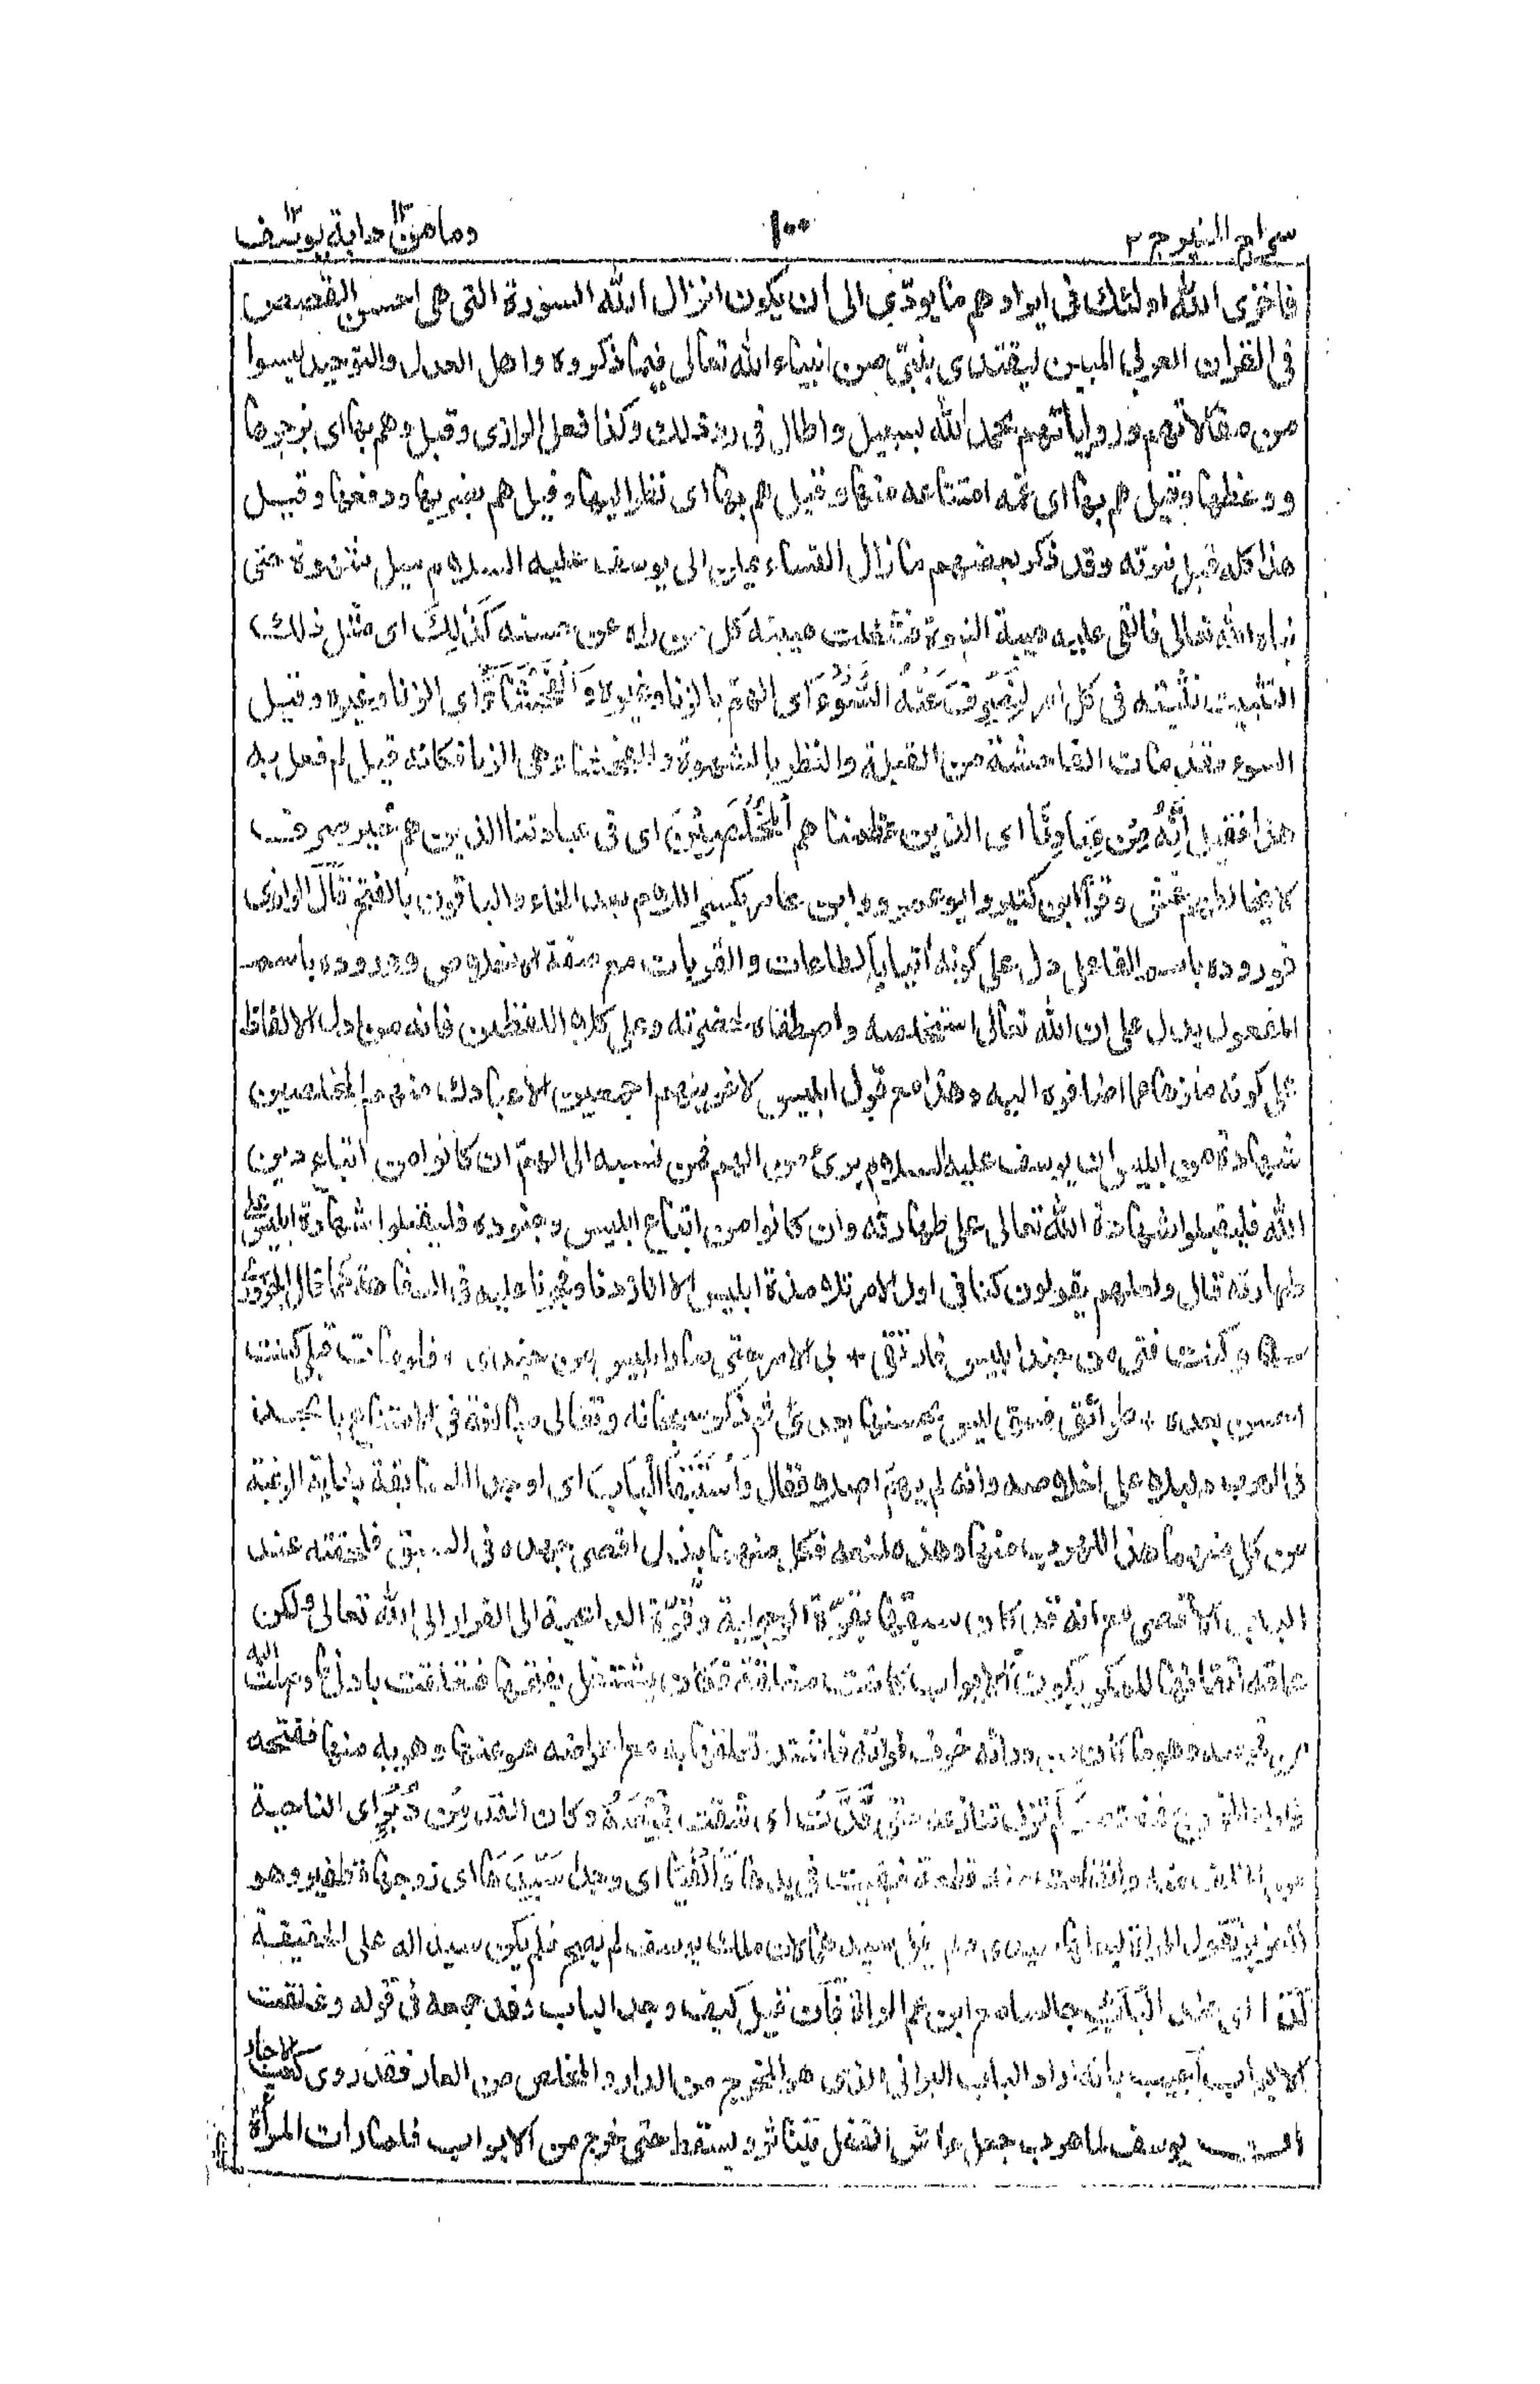 سراج المنير ج ٢
١٠٠
وما من دابة ١٢ يوسف ١٢
فاخزى الله اولئك فى ايرادهم ما يؤدّى الى ان يكون انزال الله السورة التى هى احسن القصص
فى القران العربى المبين ليقتدى بنبىّ من انبياء الله تعالى فيما ذكروه واهل العدل والتوحيد ليسوا
من مقالاتهم ورواياتهم بحمد الله بسبيل واطال فى رد ذلك وكذا فعل الرازى وقيل وهم بها اى بزجرها
ووعظها وقيل هم بها اى غمّه امتناعه منها وقيل هم بها اى نظر اليها وقيل هم بضربها ودفعها وقيل
هذا كله قبل نبوته وقد ذكر بعضهم ما زال النساء يملن الى يوسف عليه السلام ميل شهوة حتى
نباه الله تعالى فالقى عليه هيبة النبوة فشغلت هيبته كل من راه عن حسنه كَذٰلِكَ اى مثل ذلك
التثبيت نثبّته فى كل امر لِنَصْرِفَ عَنْهُ السُّوْءَ اى الهمّ بالزنا وغيره وَالْفَحْشَآءَ اى الزنا وغيره وقيل
السوء مقدمات الفاحشة من القبلة والنظر بالشهوة والفحشاء هى الزنا فكانه قيل لم فعل به
هذا فقيل اِنَّهٗ مِنْ عِبَادِنَا اى الذين عظمنا هم الْمُخْلَصِيْنَ اى فى عبادتنا الذين هم خير صرف
لا يخالطهم غش وقرأ ابن كثير وابو عمرو وابن عامر بكسر اللام بعد الخاء والباقون بالفتح قال الرازى
فوروده باسم الفاعل دل على كونه اٰتيا بالطاعات والقربات مع صفة الاخلاص ووروده باسم
المفعول يدل على ان الله تعالى استخلصه واصطفاه لحضرته وعلى كلا اللفظين فانه من ادل الالفاظ
على كونه منزها عما اضافوه اليه وهذا مع قول ابليس لاغوينهم اجمعين الا عبادك منهم المخلصين
شهادة من ابليس ان يوسف عليه السلام برىء من الهم فمن نسبه الى الهمّ ان كانوا من اتباع دين
الله فليقبلوا شهادة الله تعالى على طهارته وان كانوا من اتباع ابليس وجنوده فليقبلوا شهادة ابليس على
طهارته قال ولعلهم يقولون كنا فى اول الامر تلامذة ابليس الا انا زدنا عليه فى السفاهة كما قال
وكنت فتى من جند ابليس فارتقى ٭ بى الامر حتى صار ابليس من جندى ٭ فلو مات قبلى كنت
احسن بعده ٭ طرائق فسق ليس يحسنها بعدى ثم ذكر سبحانه وتعالى مبالغة فى الامتناع بالجد
فى الهرب دليلا على اخلاصه وانه لم يهمّ اصلا فقال وَاسْتَبَقَا الْبَابَ اى اوجد المسابقة بغاية الرغبة
من كل منهما هذا للهرب منها وهذه لمنعه فكل منهما بذل اقصى جهده فى السبق فلحقته عند
الباب الاقصى مع انه قد كان سبقها بقوّة الرجولية وقوّة الداعية الى الفرار الى الله تعالى ولكن
عاقه اتقانها للمكر بكون الابواب كانت مغلقة فكان يشتغل بفتحها فتعلقت بادنى ما وصلت اليه
من قميصه وهو ما كان من ورائه خوف فواته فاشتد تعلقها به مع اعراضه هو عنها وهربه منها ففتحه
لم تزل تنازعه حتى قَدَّتْ اى شقت قَمِيْصَهٗ وكان القد مِنْ دُبُرٍ اى الناحية
من الخلف منه وانقطعت منه قطعة فبقيت فى يدها وَاَلْفَيَا اى وجدا سَيِّدَهَا اى زوجها قطفير وهو
العزيز تقول المراة لبعلها سيدى ولم يقل سيدهما لان ملك يوسف لم يصح فلم يكن سيدا له على الحقيقة
لَدَا اى عند الْبَابِ جالسا مع ابن عم المراة فان قيل كيف وحد الباب وقد جمعه فى قوله وغلقت
الابواب اجيب بانه اراد الباب البرانى الذى هو المخرج من الدار والمخلص من العار فقد روى كعب الاحبار
ان يوسف لما هرب جعل فراش القفل يتناثر ويسقط حتى خرج من الابواب فلما رات المرأة